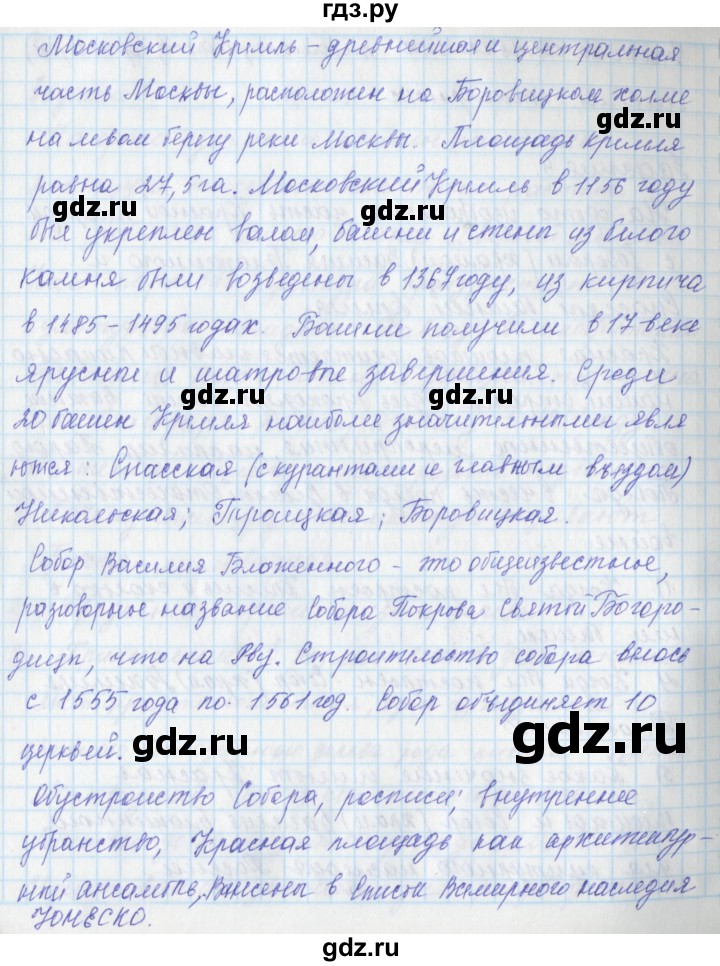 гдз.ру
Московский Кремль – древнейшая и центральная
часть Москвы, расположен на Боровицком холме
gdz.ru
gdz.ru
на левом берегу реки Москвы. Площадь Кремля
равна 27,5 га. Московский Кремль в 1156 году
gdz.ru
gdz.ru
был укреплен валом, башни и стены из белого
камня были возведены в 1367 году, из кирпича
в 1485 – 1495 годах. Башни получили в 17 веке
ярусные и шатровые завершения. Среди
gdz.ru
gdz.ru
20 башен Кремля наиболее значительными явля
ются: Спасская (с курантами и главным въездом)
Никольская; Троицкая; Боровицкая.
gdz.ru
gdz.ru
Собор Василия Блаженного – это общеизвестное,
разговорное название Собора Покрова Святой Богоро-
дицы, что на Рву. Строительство собора велось
с 1555 года по 1561 год. Собор объединяет 10
церквей.
gdz.ru
gdz.ru
Обустройство Собора, роспись, внутреннее
убранство, Красная площадь как архитектур-
ный ансамбль, внесены в Список Всемирного наследия
ЮНЕСКО.
gdz.ru
gdz.ru